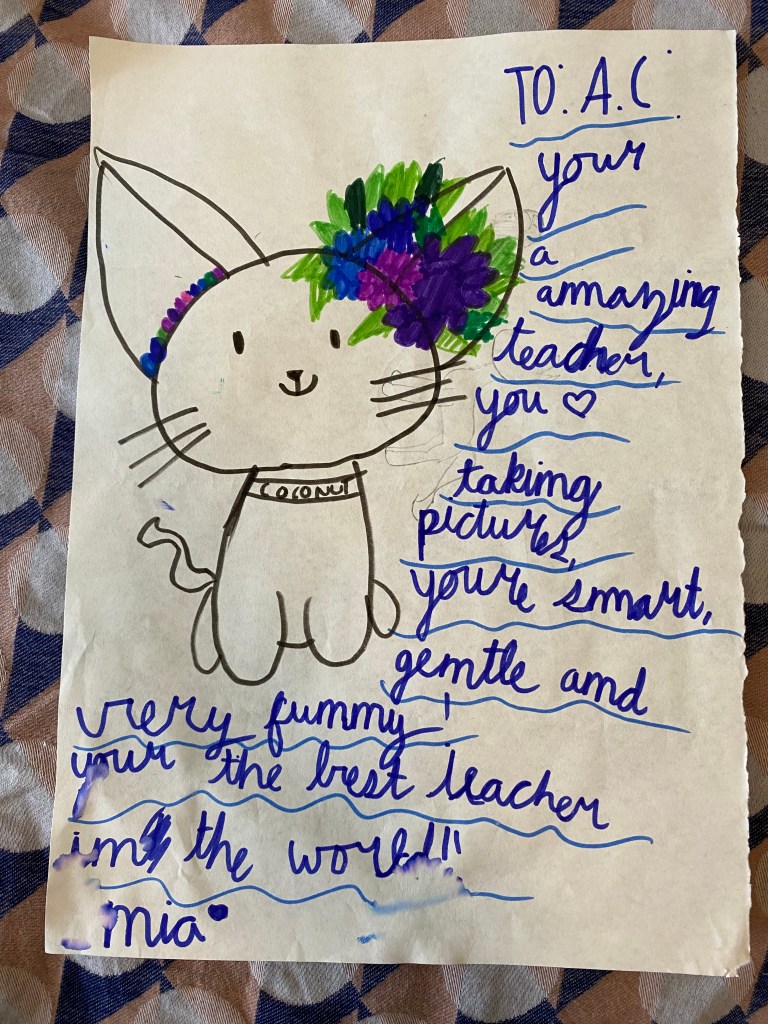 TO. A.C.
your
a
amazing
teacher,
you ♡
taking
pictures,
you're smart,
gentle and
very funny!
your the best teacher
in the world!!
Mia♥
COCONUT